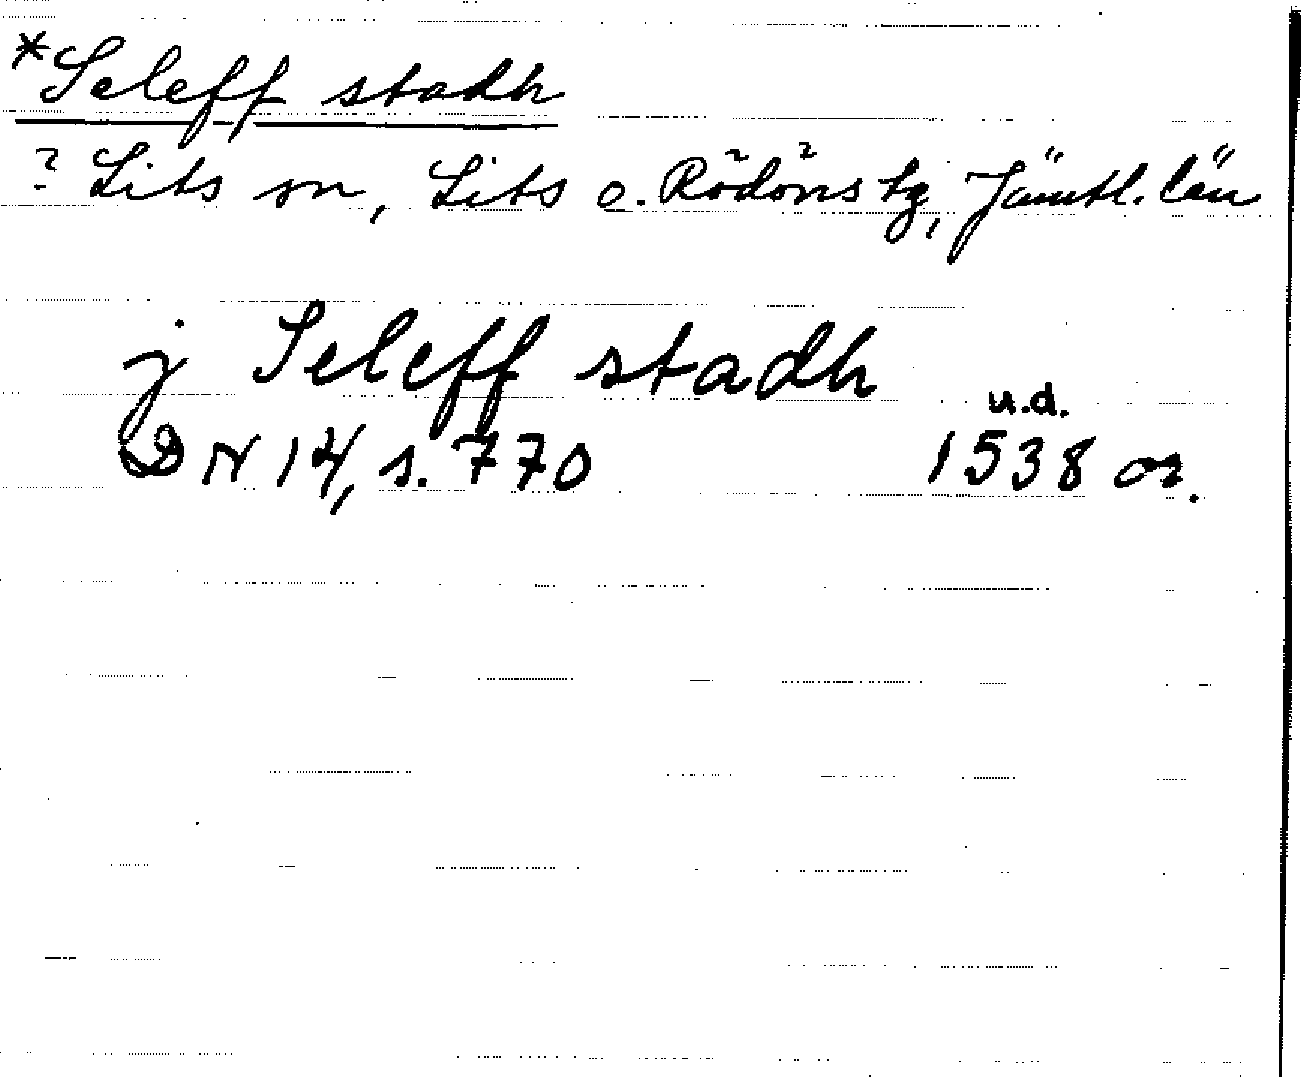 *Seleff stadh
? Lits sn, Lits o. Rödöns tg, Jämtl. län
j Seleff stadh
u.d.
DN 14, s. 770 1538 or.